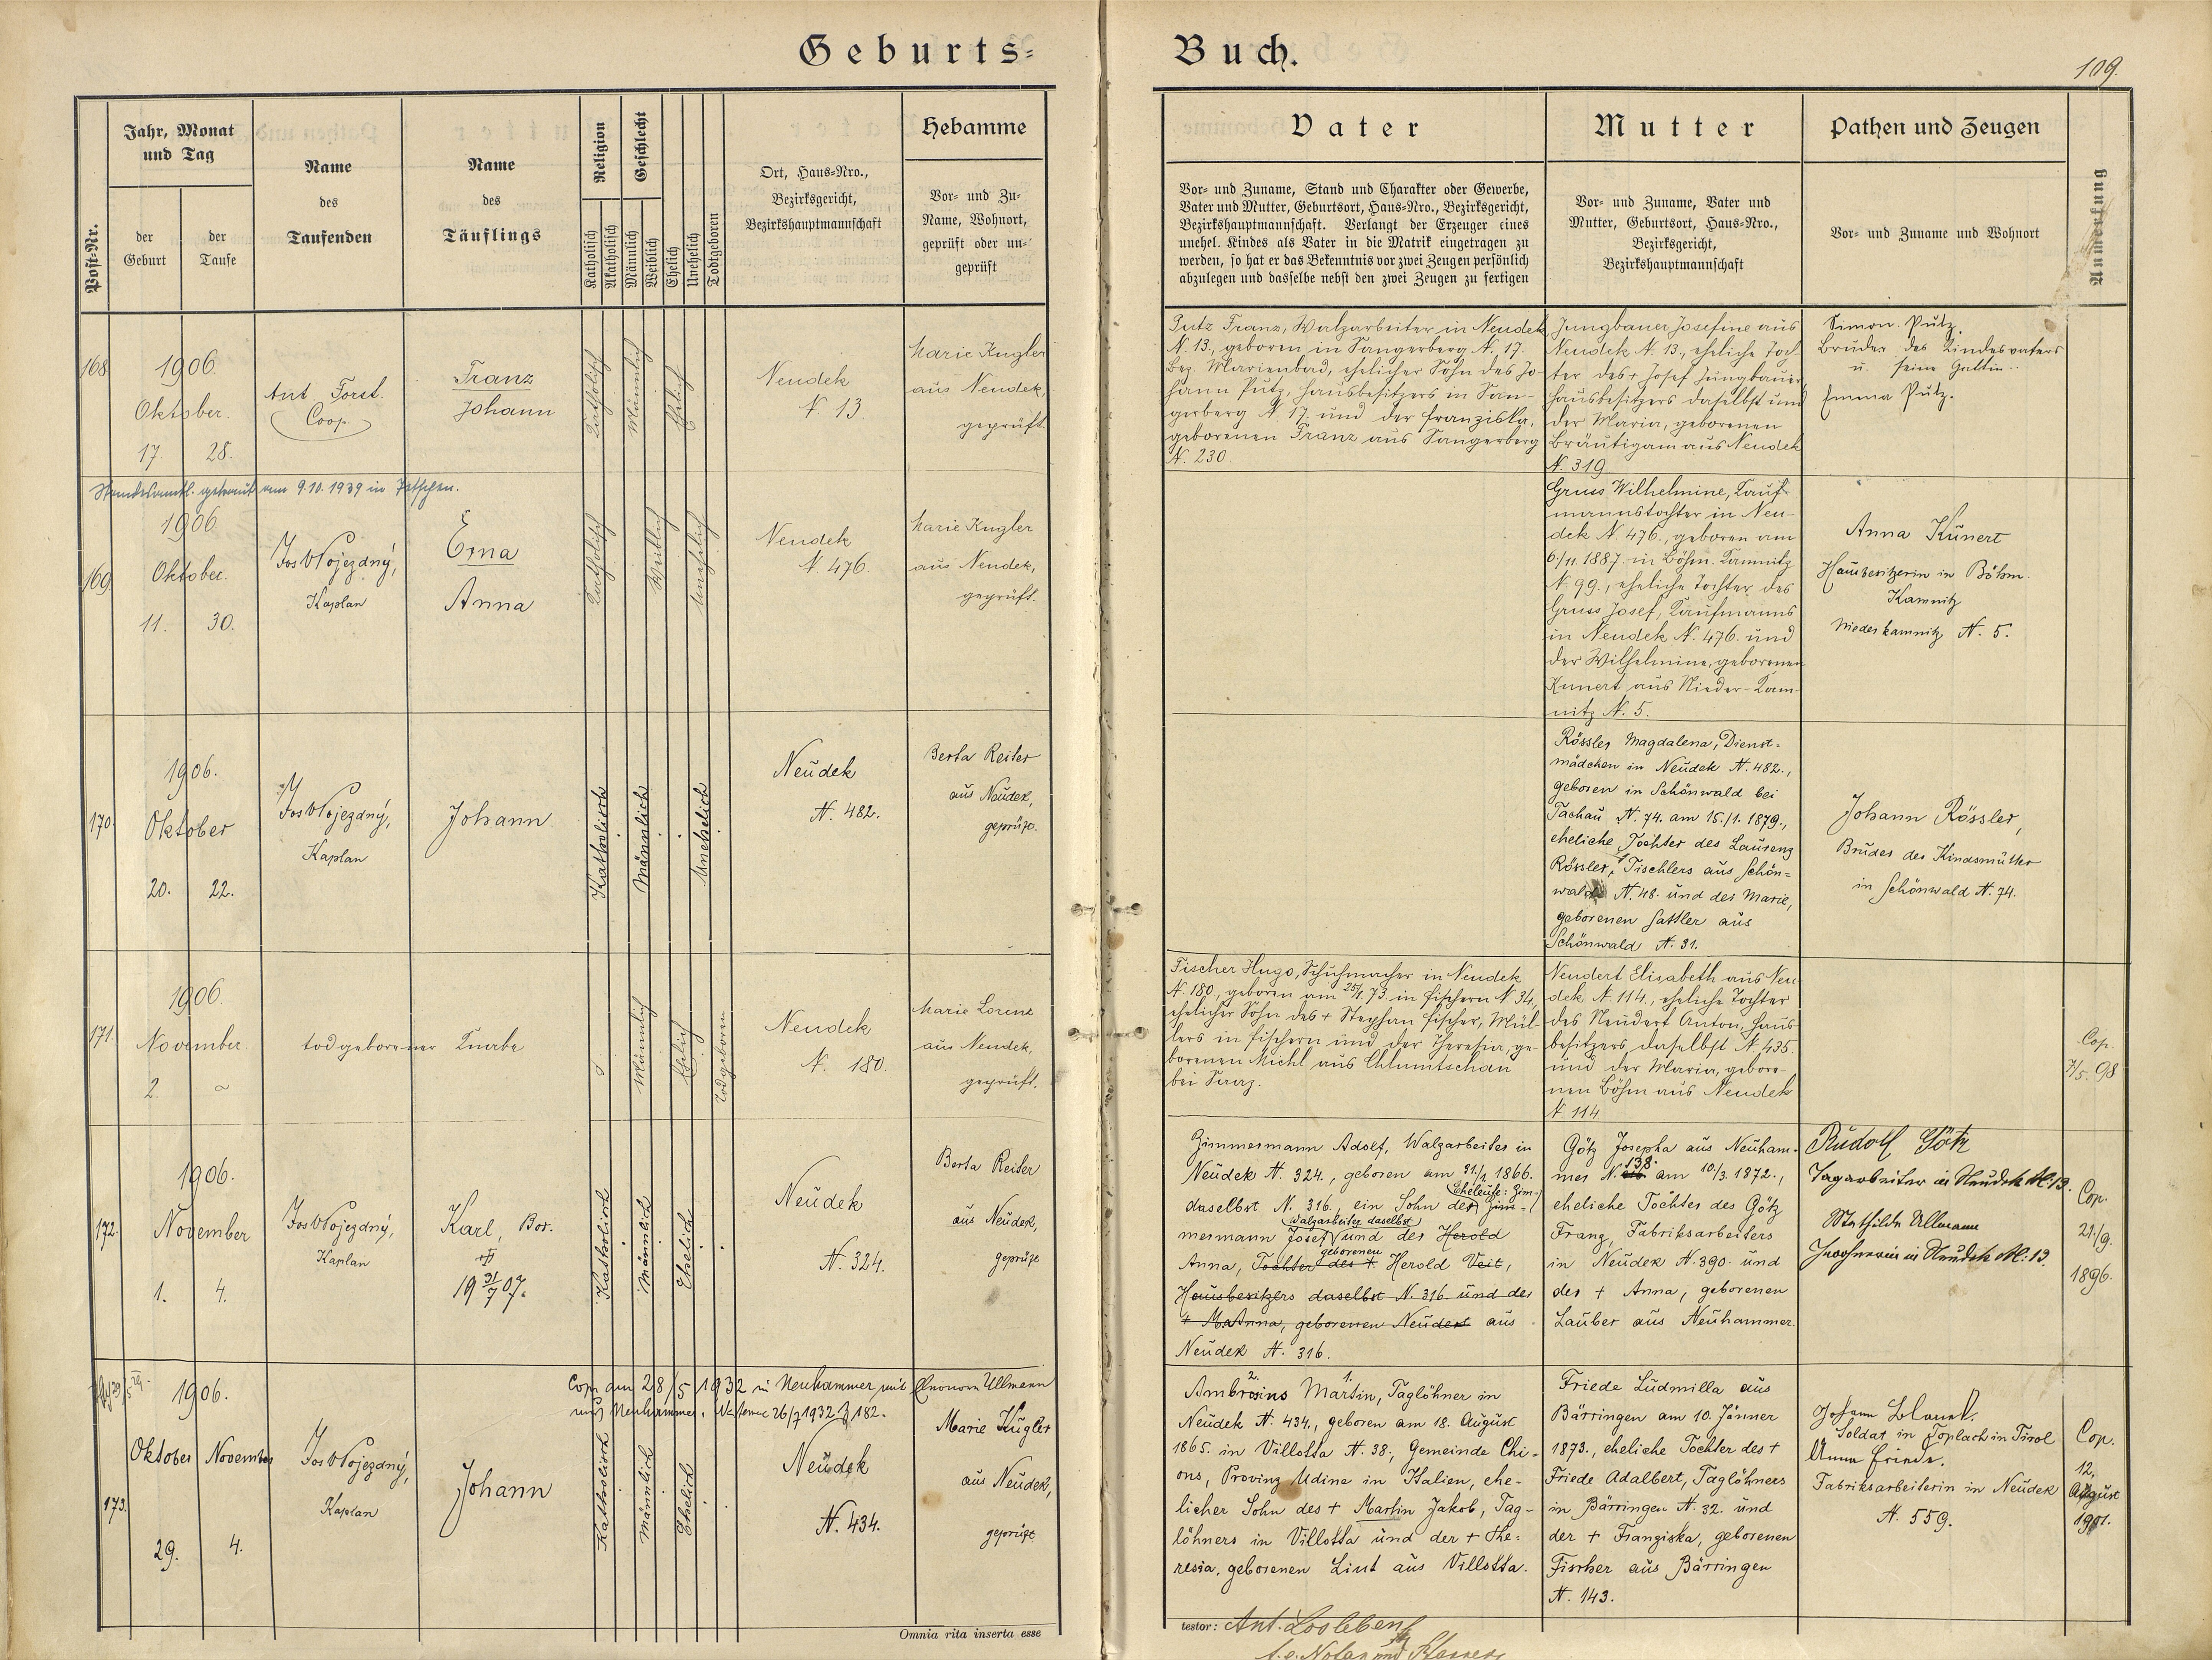 Geburts-
Buch.
109.
Post-Nr.
Jahr, Monat
und Tag
der
Geburt
der
Taufe
Name
des
Taufenden
Name
des
Täuflings
Religion
Katholisch
Akatholisch
Geschlecht
Männlich
Weiblich
Ehelich
Unehelich
Todtgeboren
Ort, Haus-Nro.,
Bezirksgericht,
Bezirkshauptmannschaft
Hebamme
Vor- und Zu-
Name, Wohnort,
geprüft oder un-
geprüft
Vater
Vor- und Zuname, Stand und Charakter oder Gewerbe,
Vater und Mutter, Geburtsort, Haus-Nro., Bezirksgericht,
Bezirkshauptmannschaft. Verlangt der Erzeuger eines
unehel. Kindes als Vater in die Matrik eingetragen zu
werden, so hat er das Bekenntnis vor zwei Zeugen persönlich
abzulegen und dasselbe nebst den zwei Zeugen zu fertigen
Mutter
Vor- und Zuname, Vater und
Mutter, Geburtsort, Haus-Nro.,
Bezirksgericht,
Bezirkshauptmannschaft
Pathen und Zeugen
Vor- und Zuname und Wohnort
Anmerkung
168
1906.
Oktober.
17
28.
Ant. Forst.
Coop.
Franz
Johann
Katholisch
Männlich
Ehelich
Neudek
N. 13.
Marie Kugler
aus Neudek,
geprüft.
Putz Franz, Walzarbeiter in Neudek
N. 13., geboren in Sangerberg N. 17.
Bez. Marienbad, ehelicher Sohn des Jo-
hann Putz, Hausbesitzers in San-
gerberg N. 17. und der Franziska,
geborenen Franz aus Sangerberg
N. 230.
Jungbauer Josefine aus
Neudek N. 13., eheliche Toch-
ter des + Josef Jungbauer,
Hausbesitzers daselbst und
der Maria, geborenen
Bräutigam aus Neudek
N. 319
Simon Putz,
Bruder des Kindesvaters
u. seine Gattin
Emma Putz.
Standesamtl. getraut am 9.10.1939 in
169.
1906.
Oktober.
11.
30.
Jos Wojezdný,
Kaplan
Erna
Anna
Katholisch
Weiblich
Unehelich
Neudek
N. 476.
Marie Kugler
aus Neudek,
geprüft.
Gruss Wilhelmine, Kauf-
mannstochter in Neu-
dek N. 476., geboren am
6/11. 1887. in Böhm. Kamnitz
N. 99., eheliche Tochter des
Gruss Josef, Kaufmanns
in Neudek N. 476. und
der Wilhelmine, geborenen
Kunert aus Nieder-Kam-
nitz N. 5.
Anna Kunert
Hausbesitzerin in Böhm.
Kamnitz
Niederkamnitz N. 5.
170.
1906.
Oktober
20.
22.
Jos Wojezdný,
Kaplan
Johann
Katholisch
Männlich
Unehelich
Neudek
N. 482.
Berta Reiter
aus Neudek,
geprüft.
Rössler Magdalena, Dienst-
mädchen in Neudek N. 482.,
geboren in Schönwald bei
Tachau N. 74. am 15./1. 1879.,
eheliche Tochter des Laurenz
Rössler, Tischlers aus Schön-
wald N. 48. und der Marie,
geborenen Sattler aus
Schönwald N. 31.
Johann Rössler,
Bruder der Kindsmutter
in Schönwald N. 74.
171.
1906.
November.
2.
todgeborener Knabe
Männlich
Ehelich
Todgeboren
Neudek
N. 180.
Marie Lorenz
aus Neudek,
geprüft.
Fischer Hugo, Schuhmacher in Neudek
N. 180., geboren am 25/1. 73. in Fischern N. 34,
ehelicher Sohn des + Stephan Fischer, Mül-
lers in Fischern und der Theresia, ge-
borenen Michl aus Chlumtschan
bei Saaz.
Neudert Elisabeth aus Neu-
dek N. 114., eheliche Tochter
des Neudert Anton, Haus-
besitzers daselbst N. 435.
und der Maria, gebore-
nen Böhm aus Neudek
N. 114
Cop.
7/5. 98
172.
1906.
November
1.
4.
Jos Wojezdný,
Kaplan
Karl, Bor.
+
19 31/7 07.
Katholisch
Männlich
Ehelich
Neudek
N. 324.
Berta Reiter
aus Neudek,
geprüft
Zimmermann Adolf, Walzarbeiter in
Neudek N. 324., geboren am 21./2 1866.
Eheleute: Zim-
daselbst N. 316., ein Sohn der Zim-
Walzarbeiter daselbst
mermann Josef und der Herold
geborenen
Anna, Tochter des + Herold Veit,
Hausbesitzers daselbst N. 316. und der
+ M. Anna, geborenen Neudert aus
Neudek N. 316.
Götz Josepha aus Neuham-
138.
mer N. am 10./3. 1872.,
eheliche Tochter des Götz
Franz, Fabriksarbeiters
in Neudek N. 390. und
der + Anna, geborenen
Lauber aus Neuhammer.
Rudolf Götz
Tagarbeiter in Neudek N. 13.
Mathilde Ullmann
in Neudek N: 13.
Cop.
21/9.
1896.
Cop. am 28/5 1932 in Neuhammer mit Eleonora Ullmann
aus Neuhammer. 26/7 1932 Z 182.
173.
1906.
Oktober
November
29.
4.
Jos Wojezdný,
Kaplan
Johann
Katholisch
Männlich
Ehelich
Neudek
N. 434.
Marie Kugler
aus Neudek,
geprüft
2. 1.
Ambrosius Martin, Taglöhner in
Neudek N. 434., geboren am 18. August
1865. in Villotta N. 38., Gemeinde Chi-
ons, Provinz Udine in Italien, ehe-
licher Sohn des + Martin Jakob, Tag-
löhners in Villotta und der + The-
resia, geborenen Liut aus Villotta.
Friede Ludmilla aus
Bärringen am 10. Jänner
1873., eheliche Tochter des +
Friede Adalbert, Taglöhners
in Bärringen N. 32. und
der + Franziska, geborenen
Fischer aus Bärringen
N. 143.
Johann
Soldat in Toplach in Tirol
Anna Friede.
Fabriksarbeiterin in Neudek
N. 559.
Cop.
12.
August
1901.
Omnia rita inserta esse
testor: Ant.